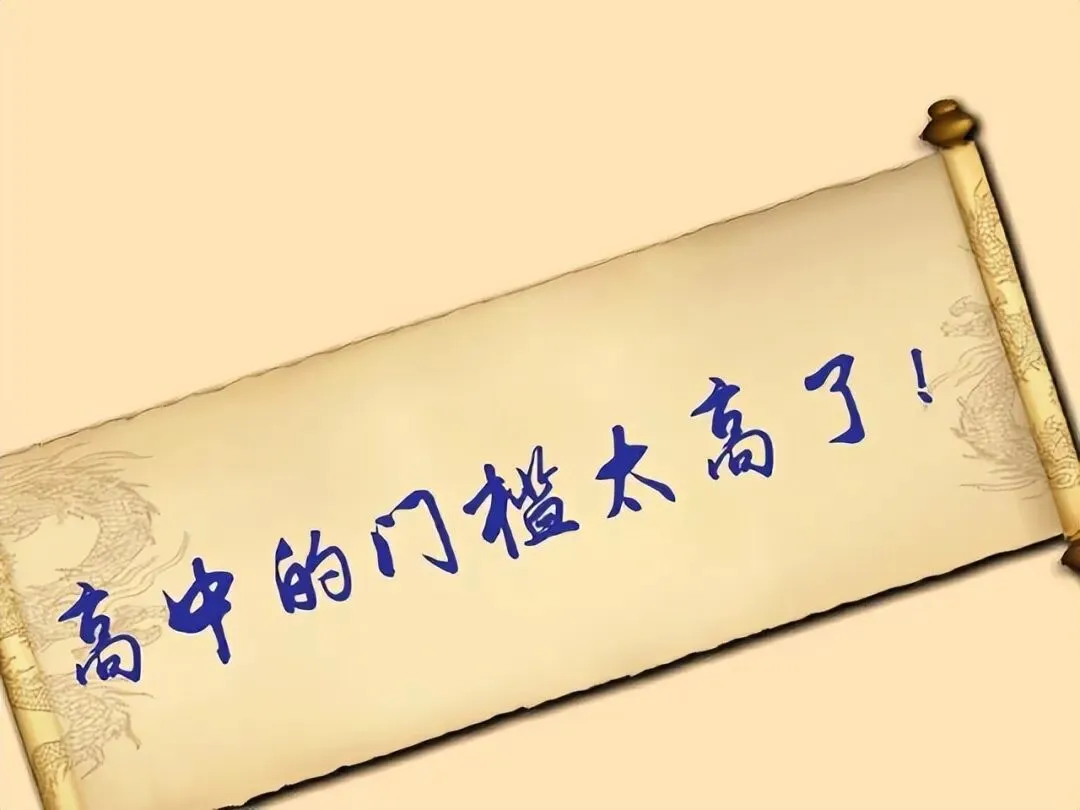 高中的门槛太高了！